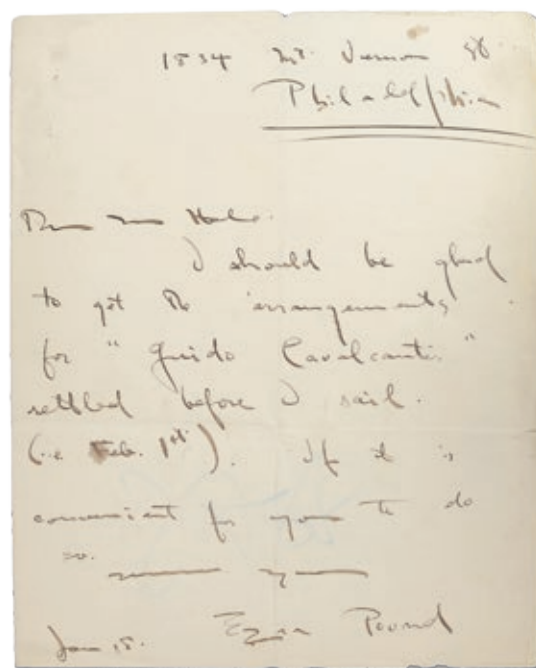 1834 Mt. Vernon St.
Philadelphia
Dear Mr
I should be glad
to get the arrangements
for "Guido Cavalcanti"
settled before I sail.
(i.e Feb. 1st). If it is
convenient for you to do
so.
yours
Ezra Pound
Jan 15.